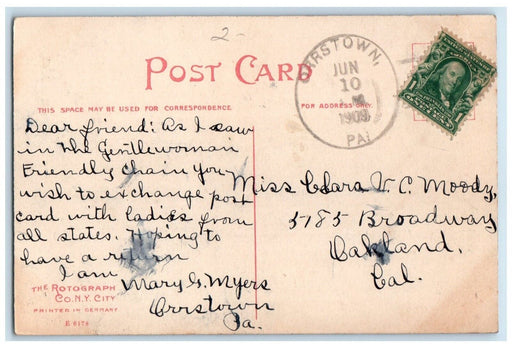 2-
POST CARD
THIS SPACE MAY BE USED FOR CORRESPONDENCE.
FOR ADDRESS ONLY.
ORRSTOWN,
JUN
10
1908
PA.
1 1
Dear friend: As I saw
in the Gentlewoman
Friendly Chain you
wish to exchange post
card with ladies from
all states. Hoping to
have a return
I am
Mary G. Myers
Orrstown
Pa.
Miss Clara V. C. Moody,
5785 Broadway
Oakland.
Cal.
THE ROTOGRAPH
CO. N.Y. CITY
PRINTED IN GERMANY
E 6176